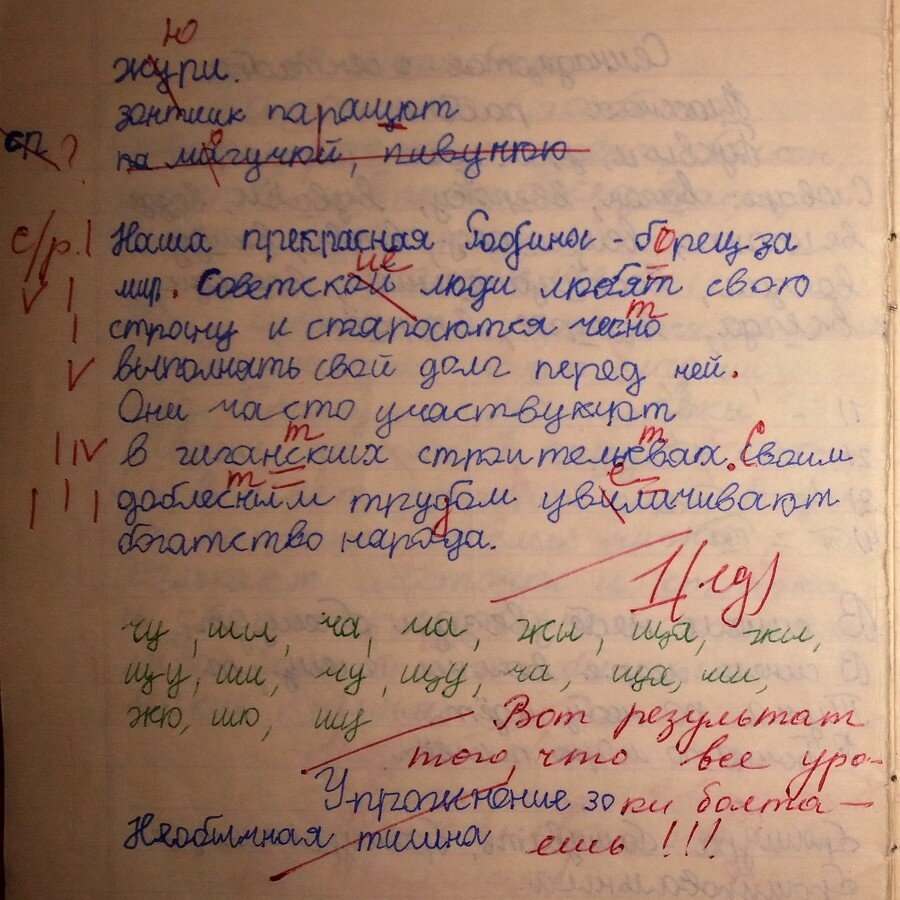 ю
жури.
зонтлик паращют
сп ?
па магучкой, пивунюю
с/р. Наша прекрасная Родины - борец за
ие
мир. Советской люди любят свою
т
страну и стараются чесно
выполнять свой долг перед ней.
Они часто участвукют
т т
в гиганских строительсвах. Своим
т е
доблесным трудом увиличивают
богатство народа.
1 (.ед)
чу, шы, ча, ма, жы, щя, жы,
щу, ши, чу, щу, ча, щя, ми,
жю, шю, шу
Вот результат
того, что все уро-
Упрожнение 30 ки болта-
Необычная тишина ешь!!!